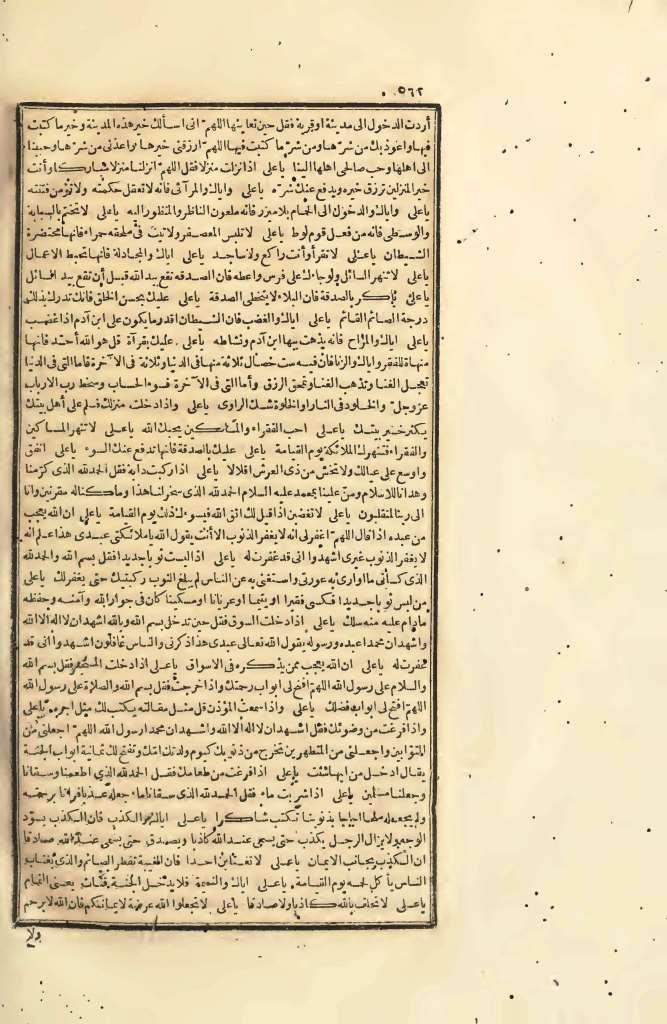 ٥٦٢
أردت الدخول الى مدينة أوقرية فقل حين تعاينها اللهم انى اسألك خيرهذه المدينة وخير ما كتبت
فيها واعوذ بك من شرها ومن شر ما كتبت فيها اللهم ارزقنى خيرها واعذنى من شرها وحببنا
الى اهلها وحب صالحى اهلها الينا ياعلى اذا نزلت منزلا فقل اللهم انزلنا منزلا مباركا وأنت
خير المنزلين ترزق خيره ويدفع عنك شره ياعلى واياك والمرآئى فانه لا تعقل حكمته ولا تؤمن فتنته
ياعلى واياك والدخول الى الحمام بلا ميزر فانه ملعون الناظر والمنظور اليه ياعلى لا تختم بالسبابة
والوسطى فانه من فعل قوم لوط ياعلى لا تلبس المعصفر ولا تبت فى ملحفة حمراء فانها محتضرة
الشيطان ياعلى لا تقرأ وأنت راكع ولا ساجد ياعلى اياك والمجادلة فانها تحبط الاعمال
ياعلى لا تنهر السائل ولو جاءك على فرس واعطه فان الصدقة تقع بيد الله قبل أن تقع بيد السائل
ياعلى باكر بالصدقة فان البلاء لا يتخطى الصدقة ياعلى عليك بحسن الخلق فانك تدرك بذلك
درجة الصائم القائم ياعلى اياك والغضب فان الشيطان اقدر ما يكون على ابن آدم اذا غضب
ياعلى اياك والمزاح فانه يذهب ببها ابن آدم ونشاطه ياعلى عليك بقرآة قل هو الله أحد فانها
منهاة للفقر واياك والزنا فان فيه ست خصال ثلاثة منها فى الدنيا وثلاثة فى الآخرة فاما التى فى الدنيا
تعجل الفنا وتذهب الغنا وتمحق الرزق وأما التى فى الآخرة فسوء الحساب وسخط رب الارباب
عز وجل والخلود فى النار او الخلوة شك الراوى ياعلى واذا دخلت منزلك فسلم على أهل بيتك
يكثر خير بيتك ياعلى احب الفقراء والمساكين يحبك الله ياعلى لا تنهر المساكين
والفقراء فتنهرك الملائكة يوم القيامة ياعلى عليك بالصدقة فانها تدفع عنك السوء ياعلى انفق
واوسع على عيالك ولا تخش من ذى العرش اقلالا ياعلى اذا ركبت دابة فقل الحمد لله الذى كرمنا
وهدانا للاسلام ومن علينا بمحمد عليه السلام الحمد لله الذى سخر لنا هذا وما كنا له مقرنين وانا
الى ربنا لمنقلبون ياعلى لا تغضبن اذا قيل لك اتق الله فيسوءك ذلك يوم القيامة ياعلى ان الله يعجب
من عبده اذا قال اللهم اغفر لى انه لا يغفر الذنوب الا أنت يقول الله يا ملائكتى عبدى هذا علم انه
لا يغفر الذنوب غيرى اشهدوا انى قد غفرت له ياعلى اذا لبست ثوبا جديدا فقل بسم الله والحمد لله
الذى كسانى ما اوارى به عورتى واستغنى به عن الناس لم يبلغ الثوب ركبتيك حتى يغفر لك ياعلى
من لبس ثوبا جديدا فكسى فقيرا اويتيما اوعريانا اومسكينا كان فى جوار الله وآمنه وحفظه
مادام عليه منه سلك ياعلى اذا دخلت السوق فقل حين تدخل بسم الله وبالله اشهد ان لا اله الا الله
واشهد ان محمدا عبده ورسوله يقول الله تعالى عبدى هذا ذكرنى والناس غافلون اشهدوا انى قد
غفرت له ياعلى ان الله يعجب ممن يذكره فى الاسواق ياعلى اذا دخلت المسجد فقل بسم الله
والسلام على رسول الله اللهم افتح لى ابواب رحمتك واذا خرجت فقل بسم الله والصلاة على رسول الله
اللهم افتح لى ابواب فضلك ياعلى واذا سمعت المؤذن قل مثل مقالته يكتب لك مثل اجره ياعلى
واذا فرغت من وضوئك فقل اشهد ان لا اله الا الله واشهد ان محمدا رسول الله اللهم اجعلنى من
التوابين واجعلنى من المتطهرين تخرج من ذنوبك كيوم ولدتك امك وتفتح لك ثمانية ابواب الجنة
يقال ادخل من ايها شئت ياعلى اذا فرغت من طعامك فقل الحمد لله الذى اطعمنا وسقانا
وجعلنا مسلمين ياعلى اذا شربت ماء فقل الحمد لله الذى سقانا ماء جعله عذبا فراتا برحمته
ولم يجعله ملحا اجاجا بذنوبنا تكتب شاكرا ياعلى اياك والكذب فان الكذب يسود
الوجه ولا يزال الرجل يكذب حتى يسمى عند الله كاذبا ويصدق حتى يسمى عند الله صادقا
ان الكذب يجانب الايمان ياعلى لا تغتابن احدا فان الغيبة تفطر الصائم والذى يغتاب
الناس يأكل لحمه يوم القيامة ياعلى اياك والنميمة فلا يدخل الجنة قتات يعنى النمام
ياعلى لا تحلف بالله كاذبا ولا صادقا ياعلى لا تجعلوا الله عرضة لايمانكم فان الله لا يرحم
ولا